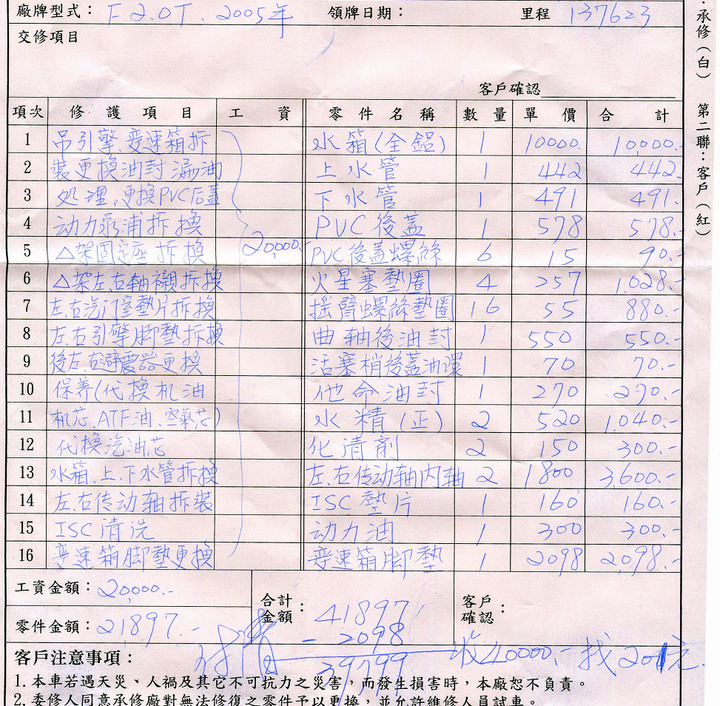 廠牌型式：F 2.0T. 2005年 領牌日期： 里程 137623
交修項目
客戶確認
項次 修護項目 工資 零件名稱 數量 單價 合計
1 吊引擎、变速箱拆 水箱(全鋁) 1 10000. 10,000.-
2 裝更換油封漏油 上水管 1 442 442.-
3 処理、更換PVC后蓋 下水管 1 491 491.-
4 动力泵浦拆換 20,000.- PVC後蓋 1 578 578.-
5 △架固定座拆換 PVC後蓋螺絲 6 15 90.-
6 △架左.右軸襯拆換 火星塞墊圈 4 257 1,028.-
7 左.右汽门室墊片拆換 摇臂螺絲墊圈 16 55 880.-
8 左.右引擎脚墊拆換 曲軸後油封 1 550 550.-
9 後左.右避震器更換 活塞梢後蓋油環 1 70 70.-
10 保养(代換机油 他命油封 1 270 270.-
11 机芯.ATF油.空氣芯) 水精(正) 2 520 1,040.-
12 代換汽油芯 化清劑 2 150 300.-
13 水箱.上.下水管拆換 左.右传动轴内轴 2 1800 3,600.-
14 左.右传动轴拆裝 ISC墊片 1 160 160.-
15 ISC清洗 动力油 1 300 300.-
16 变速箱脚墊更換 变速箱脚墊 1 2098 2,098.-
工資金額：20,000.-
零件金額：21897.-
合計金額：41897
- 2098
39799
客戶確認：
收40000.- 找201元
客戶注意事項：
1.本車若遇天災、人禍及其它不可抗力之災害，而發生損害時，本廠恕不負責。
2.委修人同意承修廠對無法修復之零件予以更換，並允許維修人員試車。
：承修(白) 第二聯：客戶(紅)